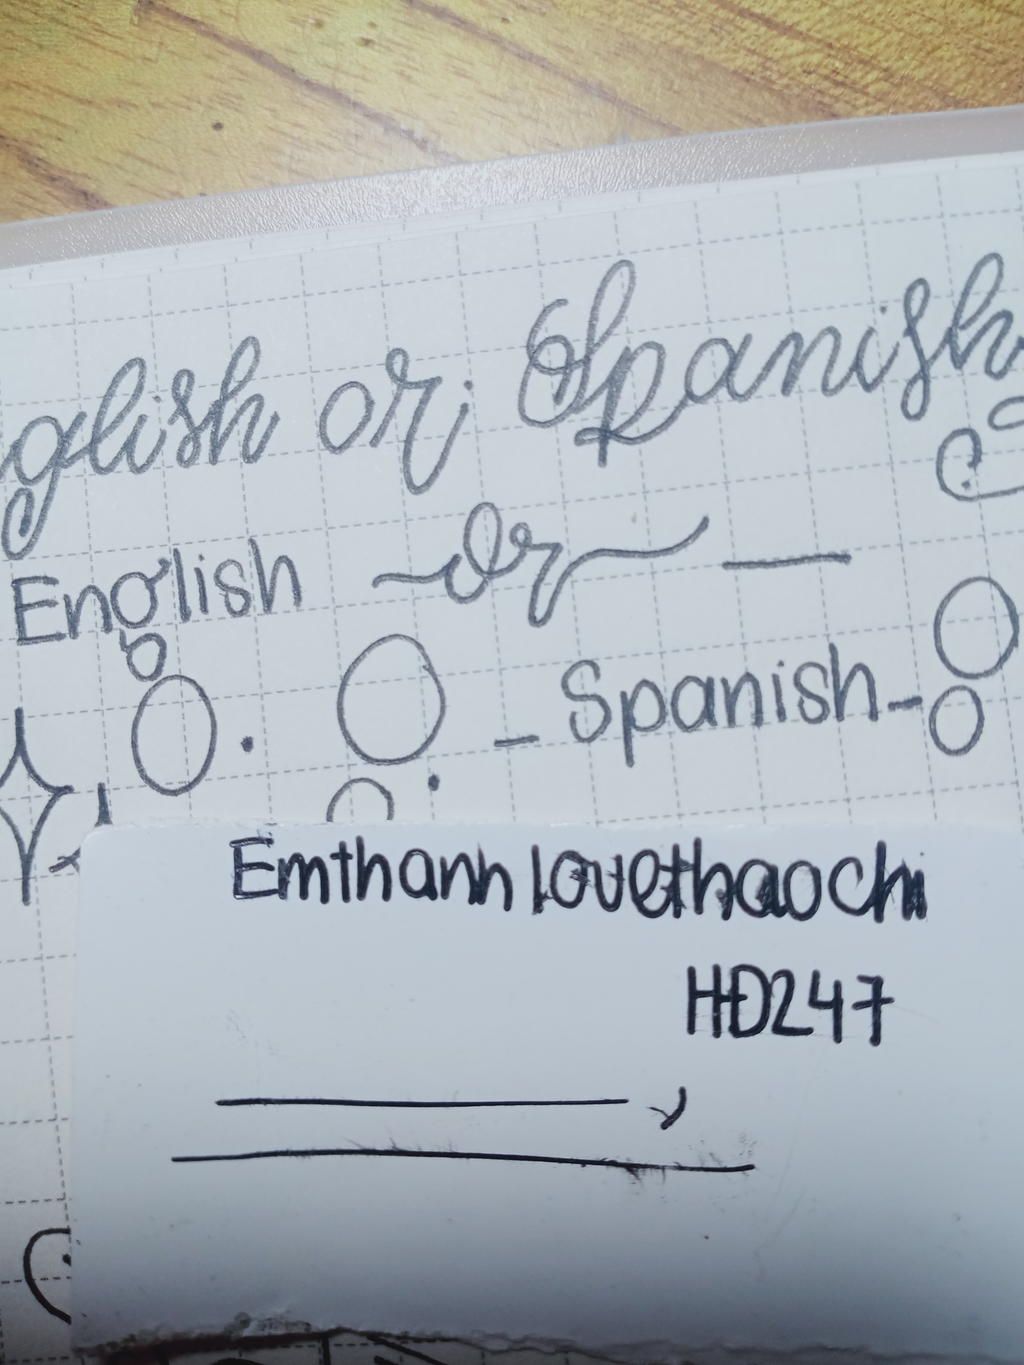 glish or Spanish
English Or —
- Spanish -
Emthanh lovethaochi
HĐ247